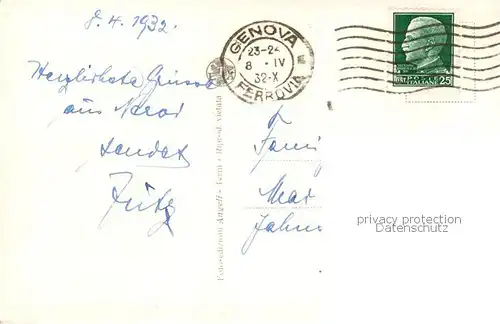 8.4.1932.
Herzlichste Grüsse
aus Nervi
sendet
Fritz
GENOVA
23-24
8 · IV
32·X
FERROVIA
POSTE
ITALIANE
25
Fotoedizioni Angeli - Terni - Ripr.ne vietata
Fam
Mar
Jahn
privacy protection
Datenschutz